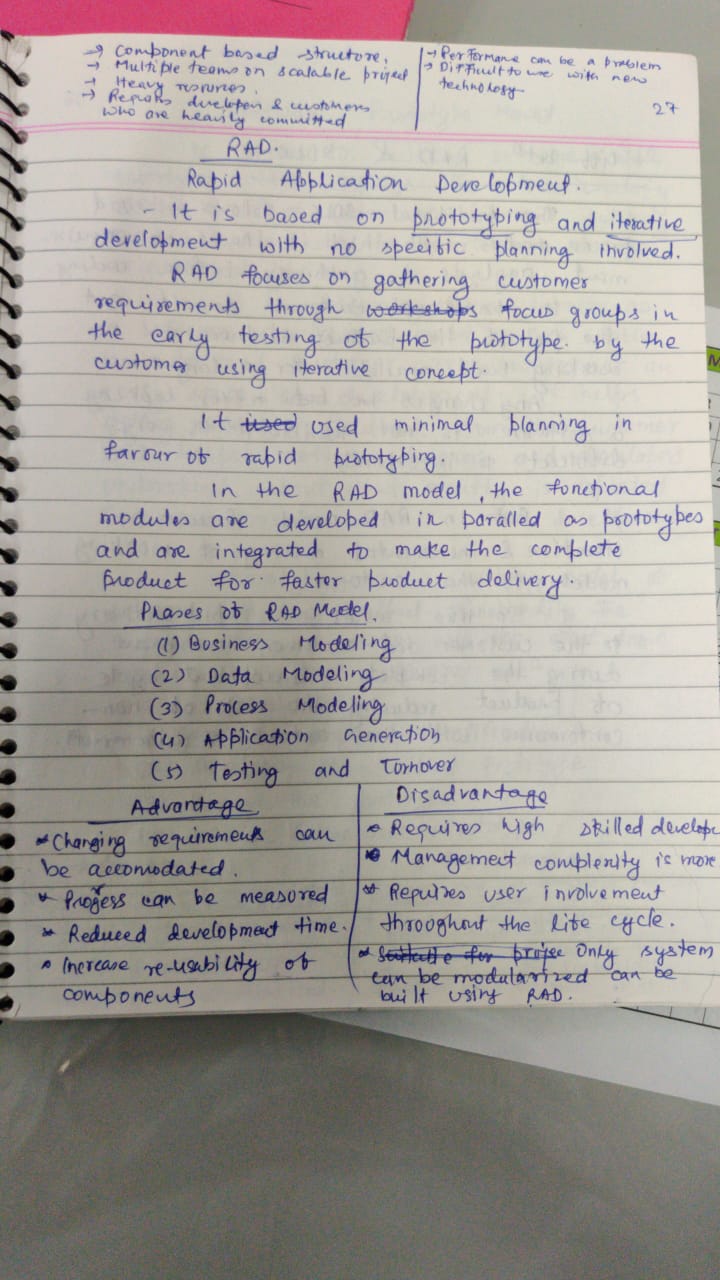 → Component based structure.
→ Multiple teams on scalable project
→ Heavy resources.
→ Requires developers & customers
who are heavily committed
→ Performance can be a problem
→ Difficult to use with new
technology
27
RAD.
Rapid Application Development.
- It is based on prototyping and iterative
development with no specific planning involved.
RAD focuses on gathering customer
requirements through workshops focus groups in
the early testing of the prototype. by the
customer using iterative concept.
It used used minimal planning in
favour of rapid prototyping.
In the RAD model, the functional
modules are developed in paralled as prototypes
and are integrated to make the complete
product for faster product delivery.
Phases of RAD Model.
(1) Business Modeling
(2) Data Modeling
(3) Process Modeling
(4) Application Generation
(5) Testing and Turnover
Advantage
* Changing requirements can
be accomodated.
* Progress can be measured
* Reduced development time.
* Increase re-usability of
components
Disadvantage
* Requires high skilled develope
* Management complexity is more
* Requires user involvement
throughout the life cycle.
* Suitable for projec Only system
can be modularized can be
built using RAD.